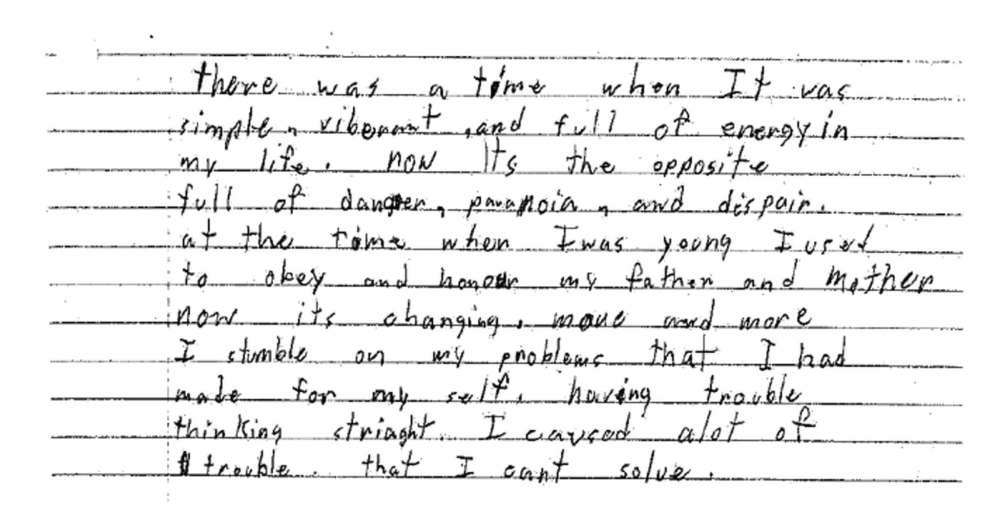 there was a time when It was
simple, viberant, and full of energy in
my life. now its the opposite
full of danger, paranoia, and dispair.
at the time when I was young I used
to obey and honour my father and mother
now its changing. more and more
I stumble on my problems that I had
made for my self. having trouble
thinking striaght. I caused alot of
trouble. that I cant solve.